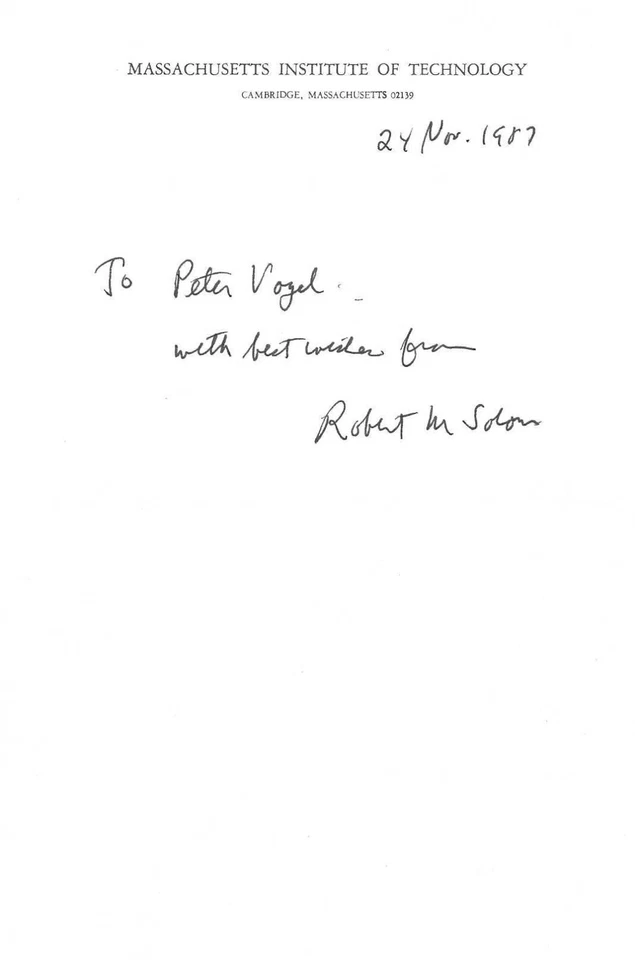 MASSACHUSETTS INSTITUTE OF TECHNOLOGY
CAMBRIDGE, MASSACHUSETTS 02139
24 Nov. 1987
To Peter Vogel
with best wishes from
Robert M Solow